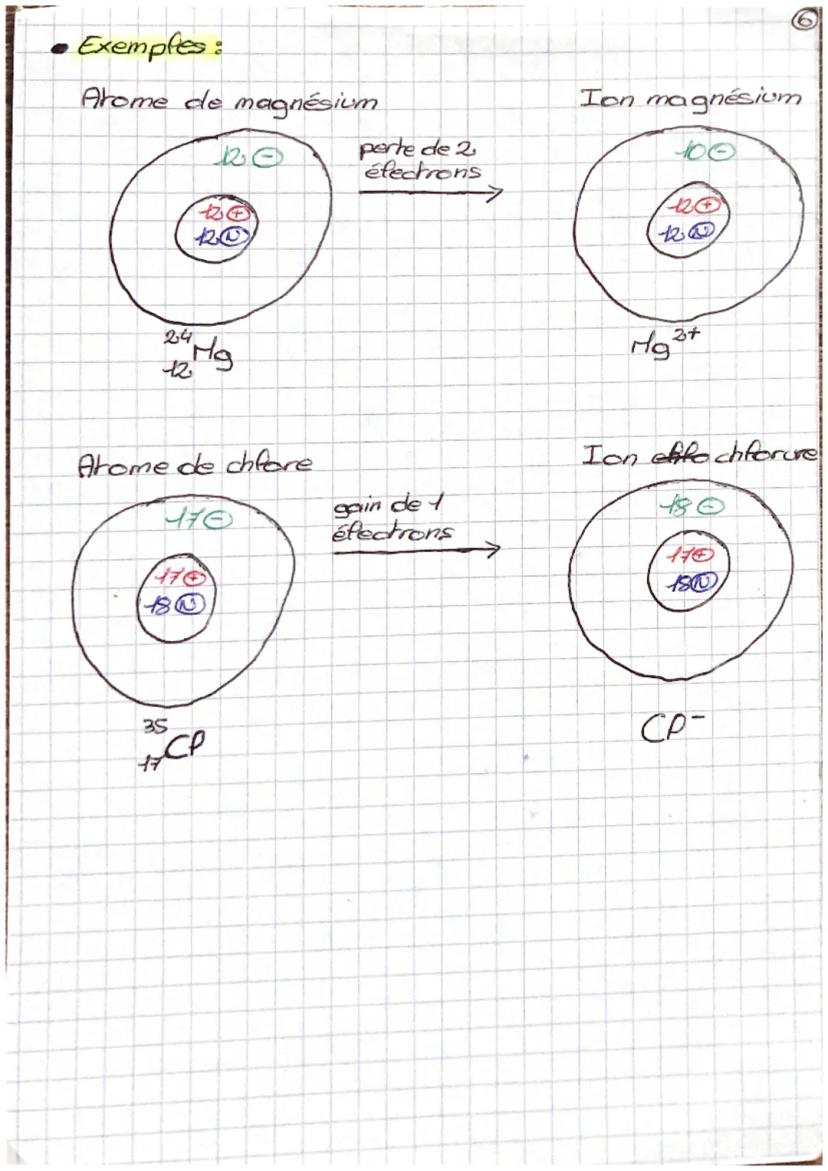 6
• Exemples :
Atome de magnésium
Ion magnésium
12 ⊖
perte de 2
électrons
10 ⊖
12 ⊕
12 Ⓝ
12 ⊕
12 Ⓝ
24
12 Mg
Mg2+
Atome de chlore
Ion chlorure
17 ⊖
gain de 1
électrons
18 ⊖
17 ⊕
18 Ⓝ
17 ⊕
18 Ⓝ
35
17 Cl
Cl-